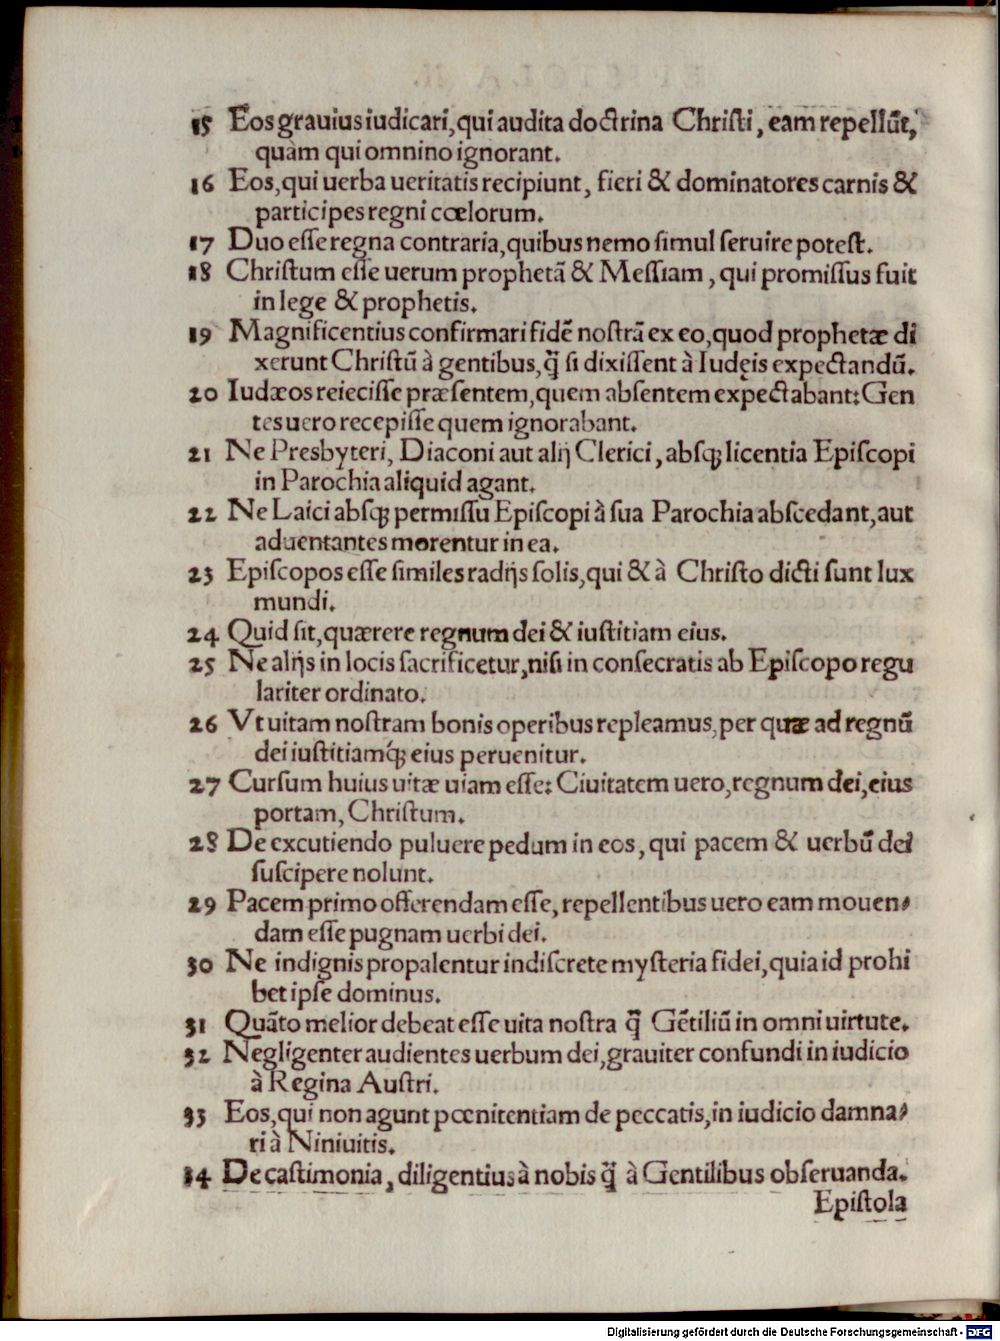 15 Eos grauius iudicari, qui audita doctrina Christi, eam repellūt,
quàm qui omnino ignorant.
16 Eos, qui uerba ueritatis recipiunt, fieri & dominatores carnis &
participes regni cœlorum.
17 Duo esse regna contraria, quibus nemo simul seruire potest.
18 Christum esse uerum prophetā & Messiam, qui promissus fuit
in lege & prophetis.
19 Magnificentius confirmari fidē nostrā ex eo, quod prophetæ di
xerunt Christū à gentibus, q̃ si dixissent à Iudęis expectandū.
20 Iudæos reiecisse præsentem, quem absentem expectabant: Gen
tes uero recepisse quem ignorabant.
21 Ne Presbyteri, Diaconi aut alij Clerici, absq; licentia Episcopi
in Parochia aliquid agant.
22 Ne Laici absq; permissu Episcopi à sua Parochia abscedant, aut
aduentantes morentur in ea.
23 Episcopos esse similes radijs solis, qui & à Christo dicti sunt lux
mundi.
24 Quid sit, quærere regnum dei & iustitiam eius.
25 Ne alijs in locis sacrificetur, nisi in consecratis ab Episcopo regu
lariter ordinato.
26 Vt uitam nostram bonis operibus repleamus, per quæ ad regnū
dei iustitiamq́; eius peruenitur.
27 Cursum huius uitæ uiam esse: Ciuitatem uero, regnum dei, eius
portam, Christum.
28 De excutiendo puluere pedum in eos, qui pacem & uerbū dei
suscipere nolunt.
29 Pacem primo offerendam esse, repellentibus uero eam mouen-
dam esse pugnam uerbi dei.
30 Ne indignis propalentur indiscrete mysteria fidei, quia id prohi
bet ipse dominus.
31 Quāto melior debeat esse uita nostra q̃ Gētiliū in omni uirtute.
32 Negligenter audientes uerbum dei, grauiter confundi in iudicio
à Regina Austri.
33 Eos, qui non agunt pœnitentiam de peccatis, in iudicio damna-
ri à Niniuitis.
34 De castimonia, diligentius à nobis q̃ à Gentilibus obseruanda.
Epistola
Digitalisierung gefördert durch die Deutsche Forschungsgemeinschaft - DFG